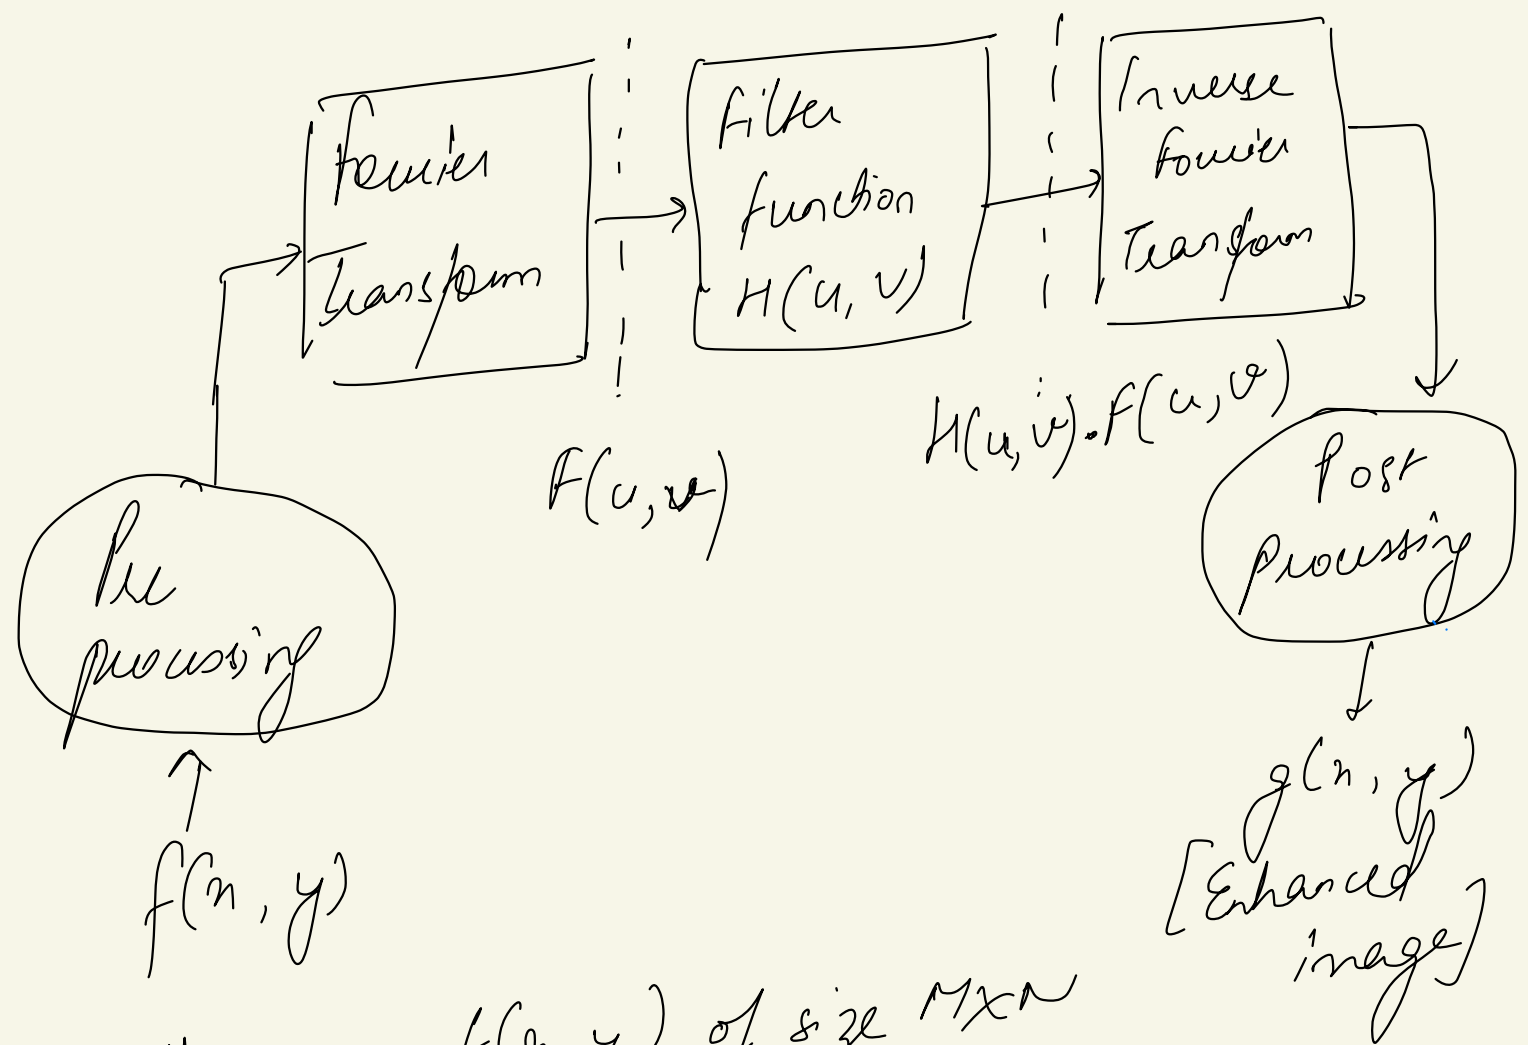 Fourier
Transform
Filter
function
H(u, v)
Inverse
Fourier
Transform
F(u, v)
H(u, v).F(u, v)
Pre
processing
Post
Processing
f(x, y)
g(x, y)
[Enhanced
image]
f(x, y) of size MXN